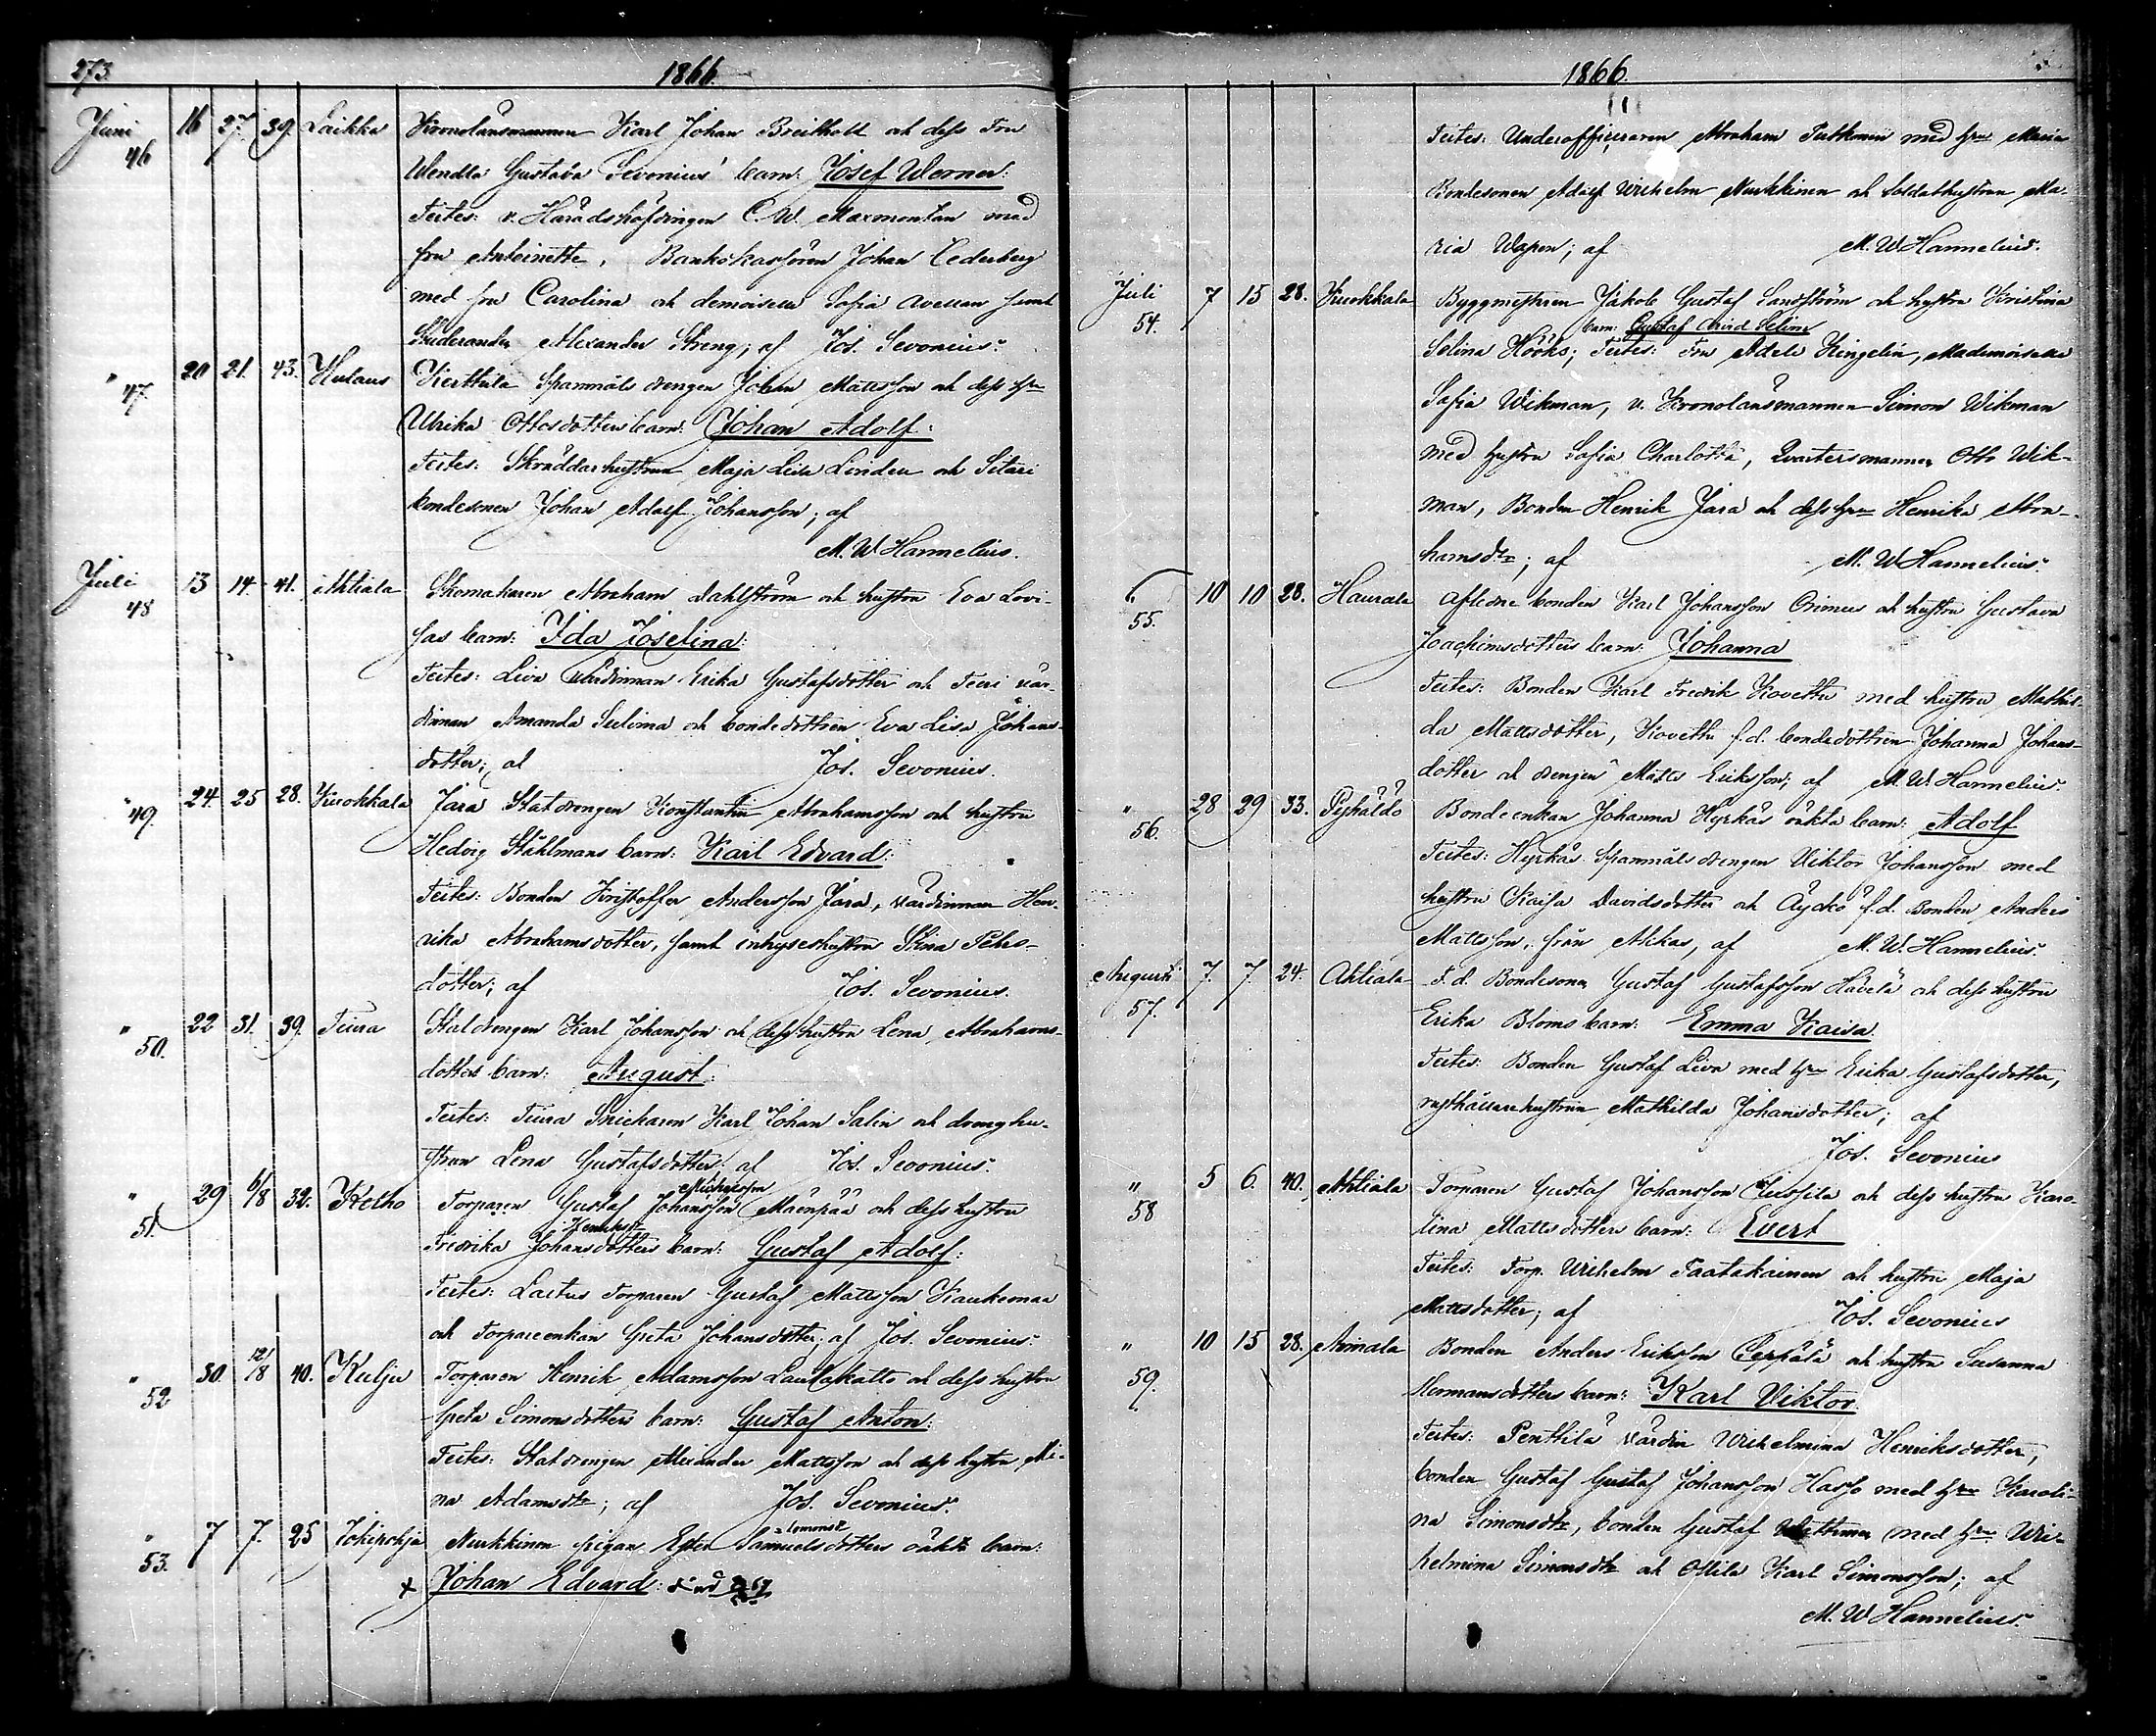 273.
1866.
Juni 46 16 27. 39. Laikka Kronolänsmannen Karl Johan Breitholtz och dess Fru
Wendla Gustava Sevonius' barn: Josef Werner:
Testes: v. Häradshöfdingen C. W. Maxmontan med
fru Antoinette, Bankokassören Johan Cederberg
med fru Carolina och demoiselle Sofia Avellan samt
Studeranden Alexander Streng; af Jos. Sevonius.
" 47. 20 21. 43. Hulaus Kerttula Spannmåls drengen Johan Mattsson och dess hu
Ulrika Ottosdotters barn: Johan Adolf:
Testes: Skräddarhustrun Maja Lisa Linden och Sitari
bondesonen Johan Adolf Johansson; af
M. W. Hannelius.
Juli 48 13 14. 41. Ahtiala Skomakaren Abraham Dahlström och hustru Eva Lovi-
sas barn: Ida Joselina:
Testes: Liva värdinnan Erika Gustafsdotter och Teeri vär-
dinnan Amanda Sulima och bondedottren Eva Lisa Johans-
dotter; af Jos. Sevonius.
" 49. 24. 25 28. Kuokkala Jara Statdrengen Konstantin Abrahamsson och hustru
Hedvig Ståhlmans barn: Karl Edvard:
Testes: Bonden Kristoffer Andersson Jara, värdinnan Hen-
rika Abrahamsdotter, samt inhyseshustru Stina Pehrs-
dotter; af Jos. Sevonius.
" 50. 22 31. 39. Tiura Statdrengen Karl Johansson och dess hustru Lena Abrahams-
dotters barn: August:
Testes: Tiura Snickaren Karl Johan Salin och drenghu-
strun Lena Gustafsdotter; af Jos. Sevonius.
" 51. 29 6/8 32. Ketho Torparen Gustaf Johansson Mäenpää och dess hustru
Michelsson
Henriksdr
Fredrika Johansdotters barn: Gustaf Adolf:
Testes: Lastus Torparen Gustaf Mattsson Kaukomaa
och Torpareenkan Greta Johansdotter; af Jos. Sevonius.
" 52 30. 12/8 40. Kulju Torparen Henrik Adamsson Lautakatto och dess hustru
Greta Simonsdotters barn: Gustaf Anton:
Testes: Statdrengen Alexander Mattsson och dess hustru Mi-
na Adamsdtr; af Jos. Sevonius.
" 53. 7 7. 25 Jokipohja Murkkinen pigan Ester Samuelsdotters oäkta barn:
Simonsd
+ Johan Edvard:
1866.
Testes: Underofficeraren Abraham Putkonen med hru Maria
Bondesonen Adolf Wilhelm Murkkinen och Soldathustrun Ma-
ria Wapen; af M. W. Hannelius.
Juli 54. 7 15 28. Kuokkala Byggmästaren Jakob Gustaf Sandström och hustru Kristina
barn: Gustaf Arvid Selim
Selina Hööks; Testes: Fru Adele Kingelin, Mademoiselle
Sofia Wikman, v. Kronolänsmannen Simon Wikman
med hustru Sofia Charlotta, Qvartersmannen Otto Wik-
man, Bonden Henrik Jara och dess hru Henrika Abra-
hamsdtr; af M. W. Hannelius.
55. 10 10 28. Haurala Aflidne bonden Karl Johansson Orimus och hustru Gustava
Joachimsdotters barn: Johanna
Testes: Bonden Karl Fredrik Kovettu med hustru Mathil-
da Mattsdotter, Kovettu f.d. bondedottren Johanna Johans-
dotter och drengen Matts Eriksson; af M. W. Hannelius.
" 56. 28 29 33. Pyhäldö Bondeenkan Johanna Hyrkäs oäkta barn: Adolf
Testes: Hyrkäs Spannmålsdrengen Viktor Johansson med
hustru Kaisa Davidsdotter och Äyckö f.d. Bonden Anders
Mattsson, från Akkas, af M. W. Hannelius.
Augusti 57. 7. 7. 24. Ahtiala F.d. Bondesonen Gustaf Gustafsson Hävelä och dess hustru
Erika Bloms barn: Emma Kaisa.
Testes: Bonden Gustaf Liva med hru Erika Gustafsdotter,
rusthållarehustrun Mathilda Johansdotter; af
Jos. Sevonius
" 58 5 6. 40. Ahtiala Torparen Gustaf Johansson Jussila och dess hustru Karo-
lina Mattsdotters barn: Evert
Testes: Torp. Wilhelm Taatakainen och hustru Maja
Mattsdotter; af Jos. Sevonius
" 59. 10 15 28. Aimala Bonden Anders Eriksson Perkälä och hustru Susanna
Hermansdotters barn: Karl Viktor.
Testes: Penttilä värdin Wilhelmina Henriksdotter,
bonden Gustaf Gustaf Johansson Hasso med hru Karoli-
na Simonsdtr, bonden Gustaf med hru Wil-
helmina Simonsdtr och Ottila Karl Simonsson; af
M. W. Hannelius.